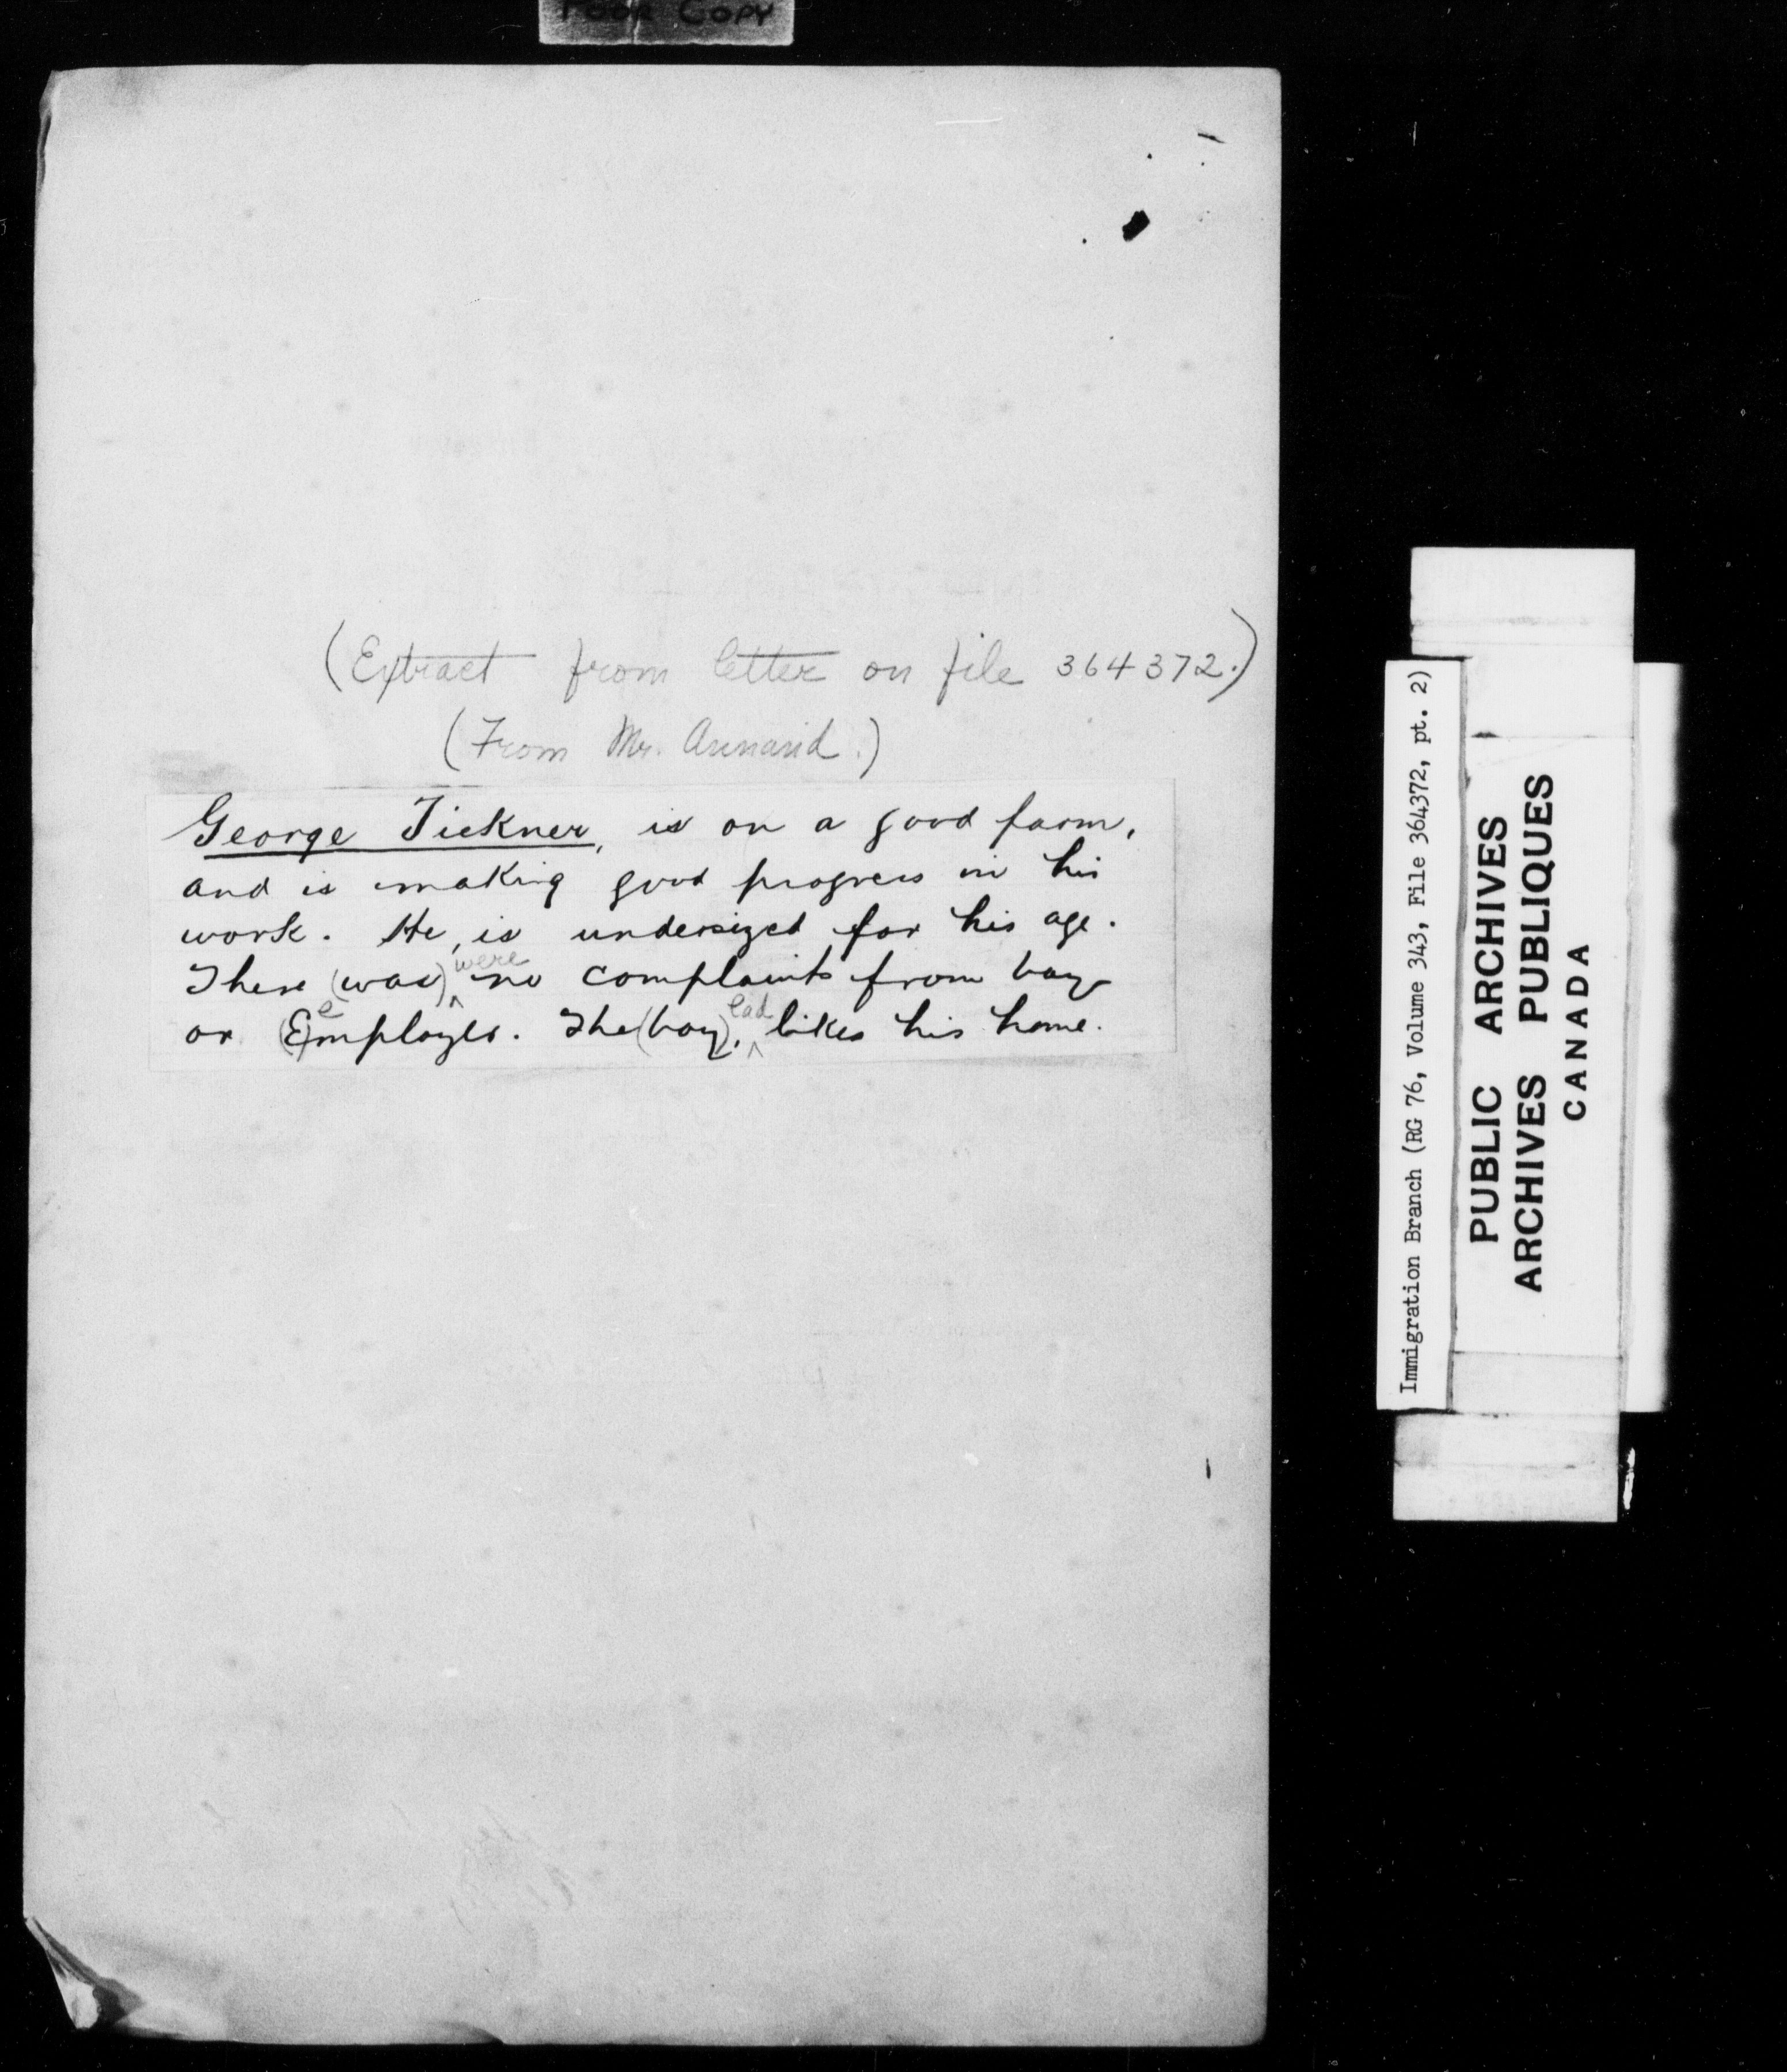 POOR COPY
(Extract from letter on file 364372.)
(From Mr. Annand.)
George Tickner, is on a good farm,
and is making good progress in his
work. He, is undersized for his age.
were
There (was) ^ no complaints from boy
e lad
or (E)mployer. The (boy), ^ likes his home.
Immigration Branch (RG 76, Volume 343, File 364372, pt. 2)
PUBLIC ARCHIVES
ARCHIVES PUBLIQUES
CANADA